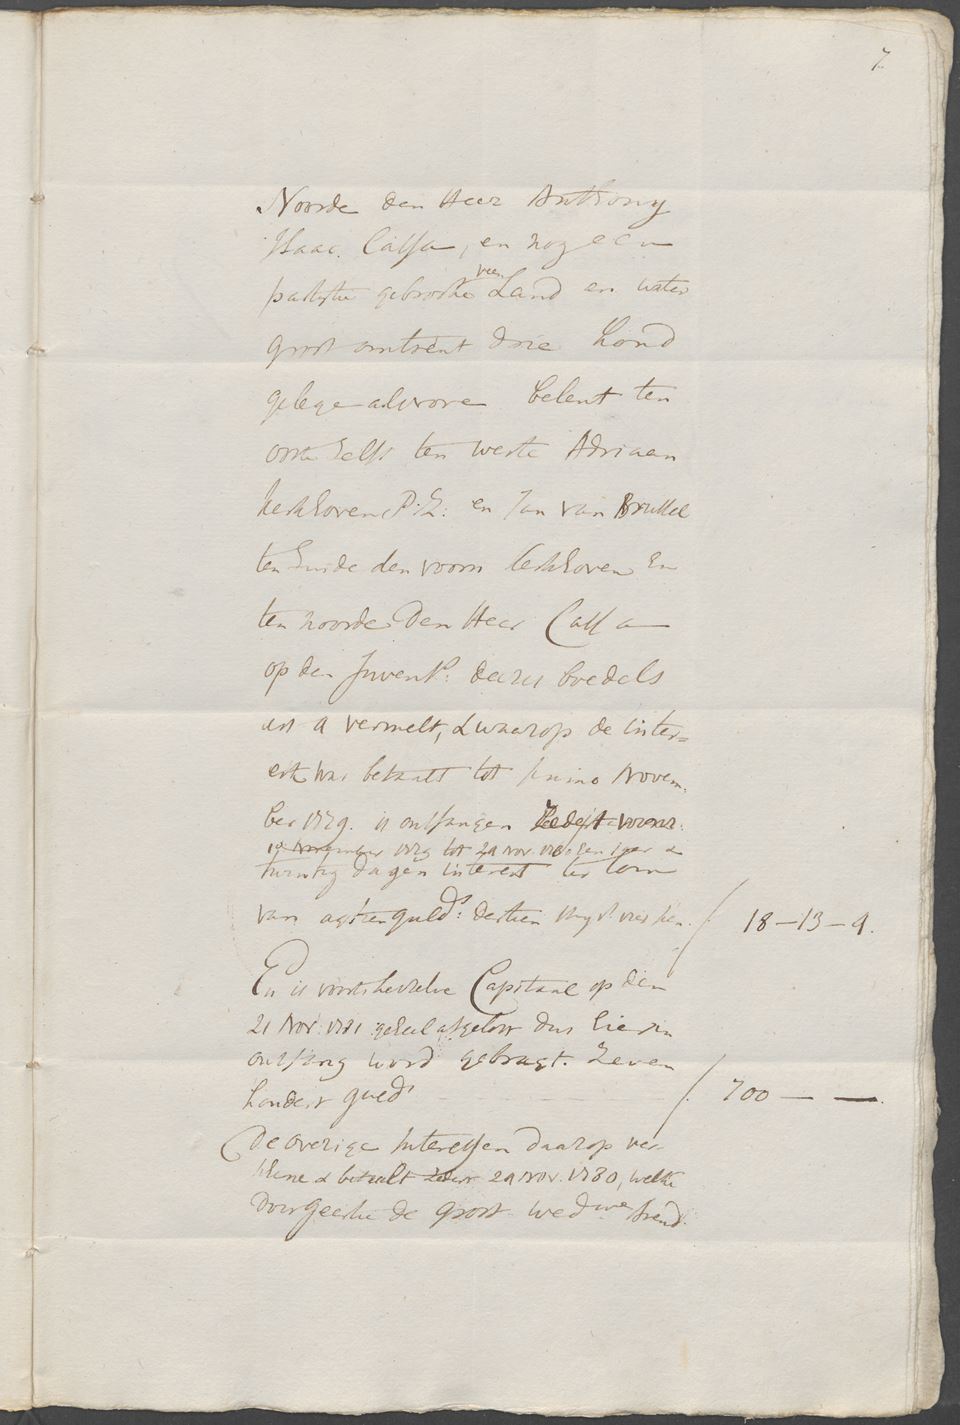 7
Noorde den Heer Anthony
Isaac Calsa, en nog een
partijtie gebrooke veen Land en water
groot omtrent drie hond
gelege alvoore belent ten
ooste zelfs ten weste Adriaan
kerkhoven P:Z: en Jan van Brussel
ten Zuide den voorn kerkhoven En
ten noorde Den Heer Calsa
op den Invent: dezes boedels
art 9 vermelt, & waarop de inter=
est was betaalt tot primo Novem:
ber 1779. is ontfangen
November 1779 tot 20 nov. een Jaar &
twintig dagen interest ter som
van agtien guld:s dertien stuyv:s vier pen. / 18-13-4.
En is voorschreeve Capitaal op den
21 Nov: 1781 geheel afgelost dus hier in
ontfang word gebragt. Zeven
hondert guld:s / 700 — —.
De overige Interessen daarop ver-
scheene & betaalt 20 nov. 1780, welke
door Geertie de Groot wed:we Arend